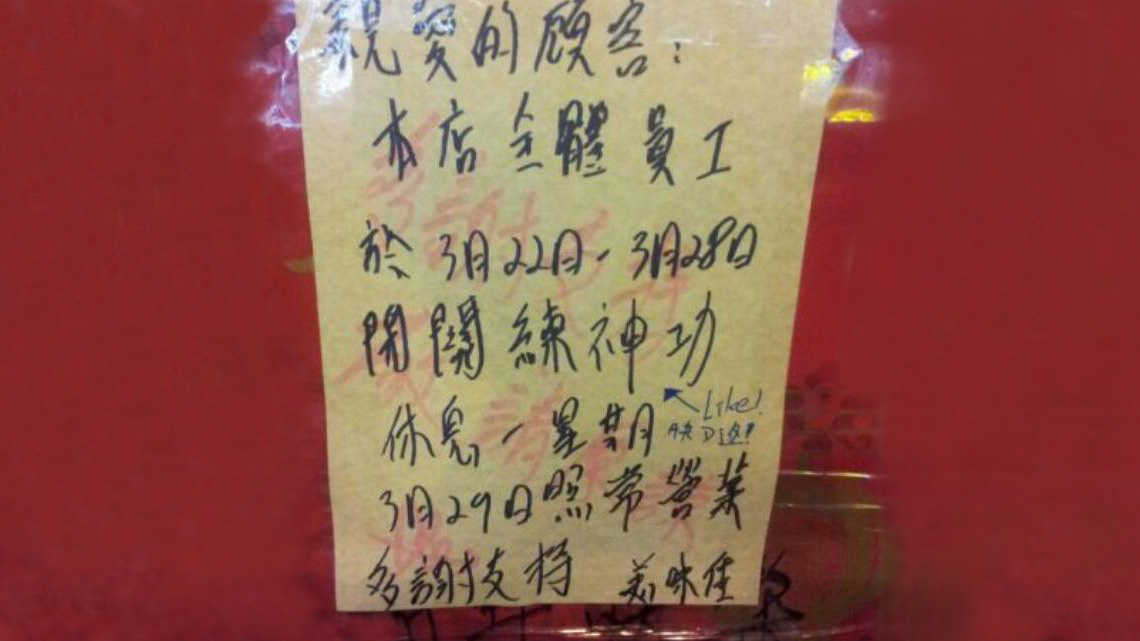 親愛的顧客：
本店全體員工
於3月22日-3月28日
閉關練神功
Like!
快D返!
休息一星期
3月29日照常營業
多謝支持 美味佳